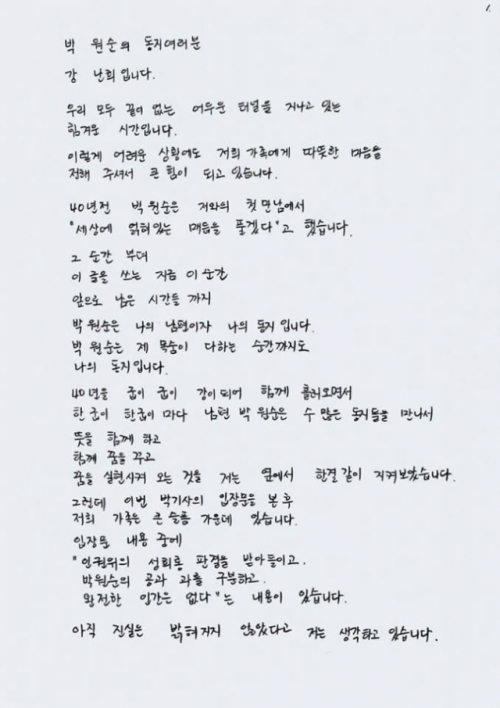 1.
박 원순의 동지여러분
강 난희 입니다.
우리 모두 끝이 없는 어두운 터널을 지나고 있는
힘겨운 시간입니다.
이렇게 어려운 상황에도 저희 가족에게 따뜻한 마음을
전해 주셔서 큰 힘이 되고 있습니다.
40년전 박 원순은 저와의 첫 만남에서
"세상에 얽혀있는 매듭을 풀겠다"고 했습니다.
그 순간 부터
이 글을 쓰는 지금 이 순간
앞으로 남은 시간들 까지
박 원순은 나의 남편이자 나의 동지 입니다.
박 원순는 제 목숨이 다하는 순간까지도
나의 동지입니다.
40년을 굽이 굽이 강이되어 함께 흘러오면서
한 굽이 한굽이 마다 남편 박 원순은 수 많은 동지들을 만나서
뜻을 함께 하고
함께 꿈을 꾸고
꿈을 실현시켜 오는 것을 저는 옆에서 한결 같이 지켜보았습니다.
그런데 이번 박기사의 입장문을 본 후
저희 가족은 큰 슬픔 가운데 있습니다.
입장문 내용 중에
"인권위의 성희롱 판결을 받아들이고.
박원순의 공과 과를 구분하고.
완전한 인간은 없다"는 내용이 있습니다.
아직 진실은 밝혀지지 않았다고 저는 생각하고 있습니다.